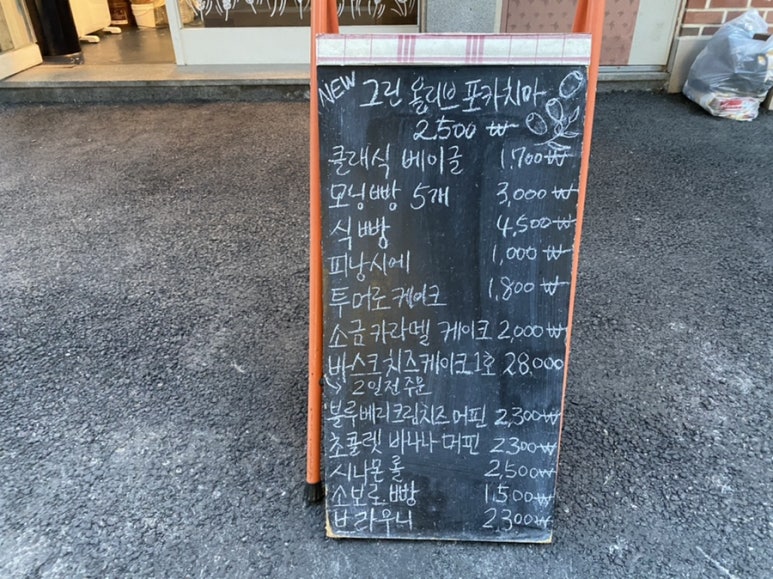 NEW 그린 올리브 포카치아
2,500 ₩
클래식 베이글 1,700 ₩
모닝빵 5개 3,000 ₩
식빵 4,500 ₩
피낭시에 1,000 ₩
투머로케이크 1,800 ₩
소금카라멜 케이크 2,000 ₩
바스크치즈케이크 1호 28,000
↳ 2일전 주문
블루베리크림치즈 머핀 2,300 ₩
초콜렛 바나나 머핀 2300 ₩
시나몬 롤 2,500 ₩
소보로빵 1,500 ₩
브라우니 2,300 ₩